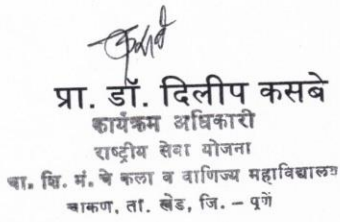 प्रा. डॉ. दिलीप कसबे
कार्यक्रम अधिकारी
राष्ट्रीय सेवा योजना
चा. शि. मं. चे कला व वाणिज्य महाविद्यालय
चाकण, ता. खेड, जि. – पुणें